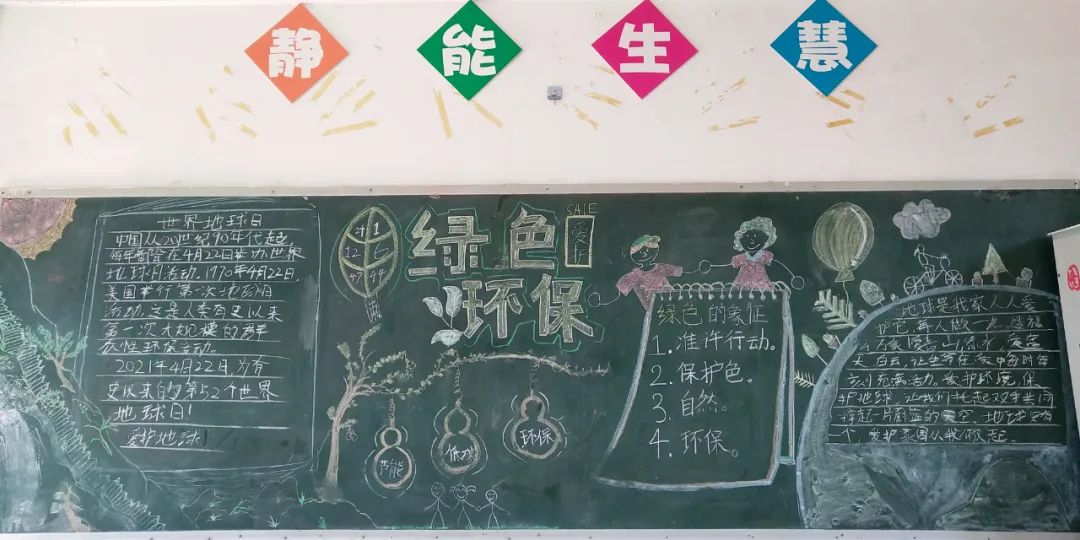 静能生慧
世界地球日
中国从20世纪90年代起,
每年都会在4月22日举办世界
地球日活动.1970年4月22日.
美国举行第一次地球日
活动.这是人类有史以来
第一次大规模的群
众性环保活动.
2021年4月22日,为有
史以来的第52个世界
地球日!
爱护地球!
绿色
环保
SALE
爱护
节能
低碳
环保
绿色的象征
1.准许行动。
2.保护色。
3.自然。
4.环保。
地球是我家人人爱
护它.每人做一点
天
充满活力.爱护环境,保
护地球,让我们托起双手共同
撑起一片蔚蓝的天空.地球
个,爱护家园从我做起.